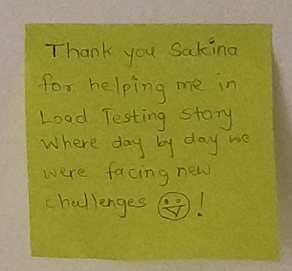 Thank you Sakina
for helping me in
Load Testing Story
where day by day we
were facing new
challenges 😜!